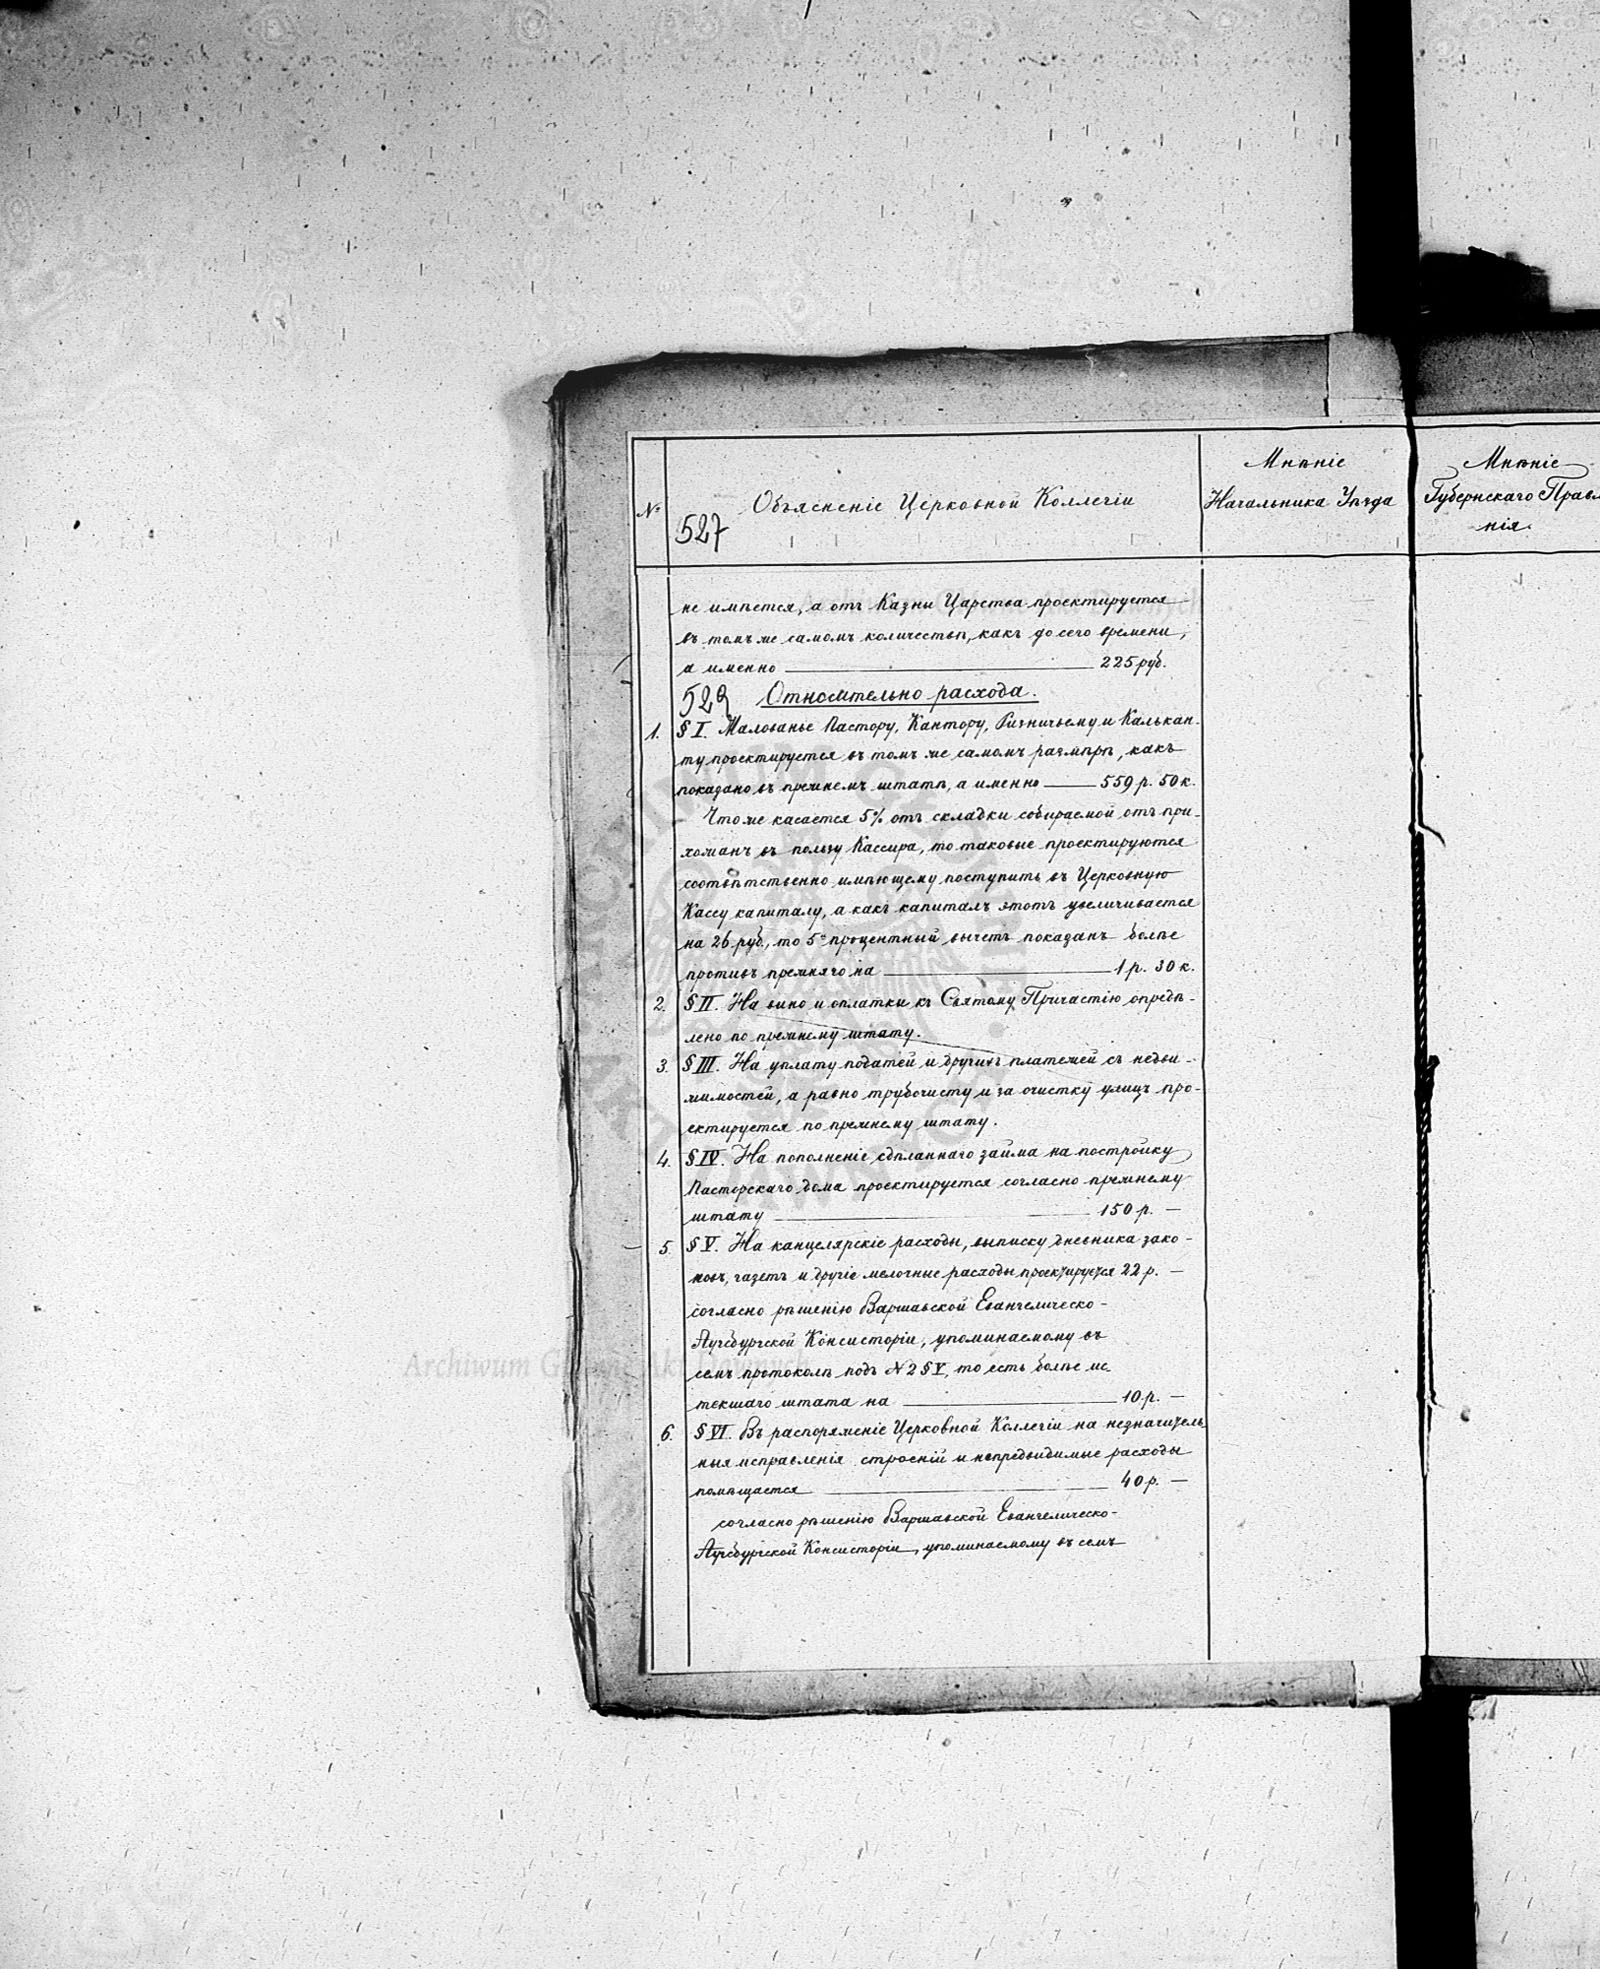 №
527
Объясненіе Церковной Коллегіи
Мнѣніе
Начальника Уѣзда
Мнѣніе
Губернскаго Правл
нія.
не имѣется, а отъ Казны Царства проектируется
въ томъ же самомъ количествѣ, какъ до сего времени,
а именно 225 руб.
529 Относительно расхода.
1. § I. Жалованье Пастору, Кантору, Ризничьему и Калькан-
ту проектируется въ томъ же самомъ размѣрѣ, какъ
показано въ прежнемъ штатѣ, а именно 559 р. 50 к.
Что же касается 5% отъ складки собираемой отъ при-
хожанъ въ пользу Кассира, то таковые проектируются
соотвѣтственно имѣющему поступить въ Церковную
Кассу капиталу, а какъ капиталъ этотъ увеличивается
на 26 руб., то 5º процентный вычетъ показанъ болѣе
противъ прежняго на 1 р. 30 к.
2. § II. На вино и оплатки къ Святому Причастію опредѣ-
лено по прежнему штату.
3. § III. На уплату податей и другихъ платежей съ недви-
жимостей, а равно трубочисту и за очистку улицъ про-
ектируется по прежнему штату.
4. § IV. На пополненіе сдѣланнаго займа на постройку
Пасторскаго дома проектируется согласно прежнему
штату 150 р. —
5. § V. На канцелярскіе расходы, выписку дневника зако-
новъ, газетъ и другіе мелочные расходы проектируется 22 р. —
согласно рѣшенію Варшавской Евангелическо-
Аугсбургской Консисторіи, упоминаемому въ
семъ протоколѣ подъ № 2 § V, то есть болѣе ис
текшаго штата на 10 р. —
6. § VI. Въ распоряженіе Церковной Коллегіи на незначитель
ныя исправленія строеній и непредвидимые расходы
помѣщается 40 р. —
согласно рѣшенію Варшавской Евангелическо-
Аугсбургской Консисторіи, упоминаемому въ семъ
Archiwum Główne Akt Dawnych